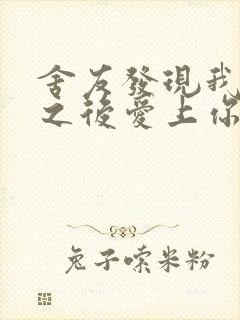 舍友發現我
之後愛上你
兔子嗦米粉